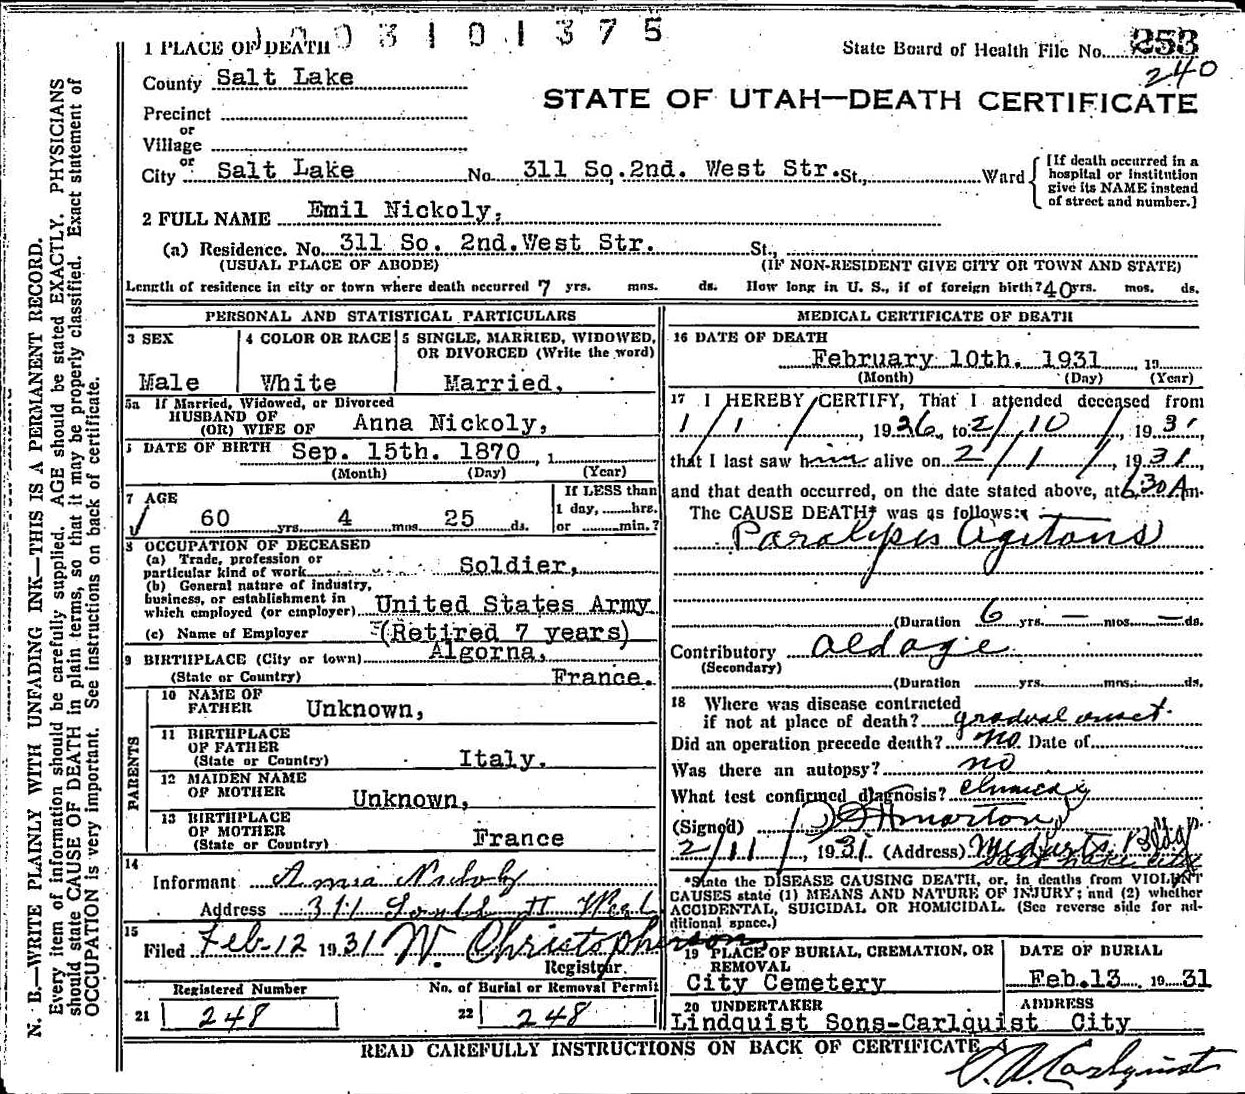 1003101375
1 PLACE OF DEATH
State Board of Health File No. 253
240
County Salt Lake
STATE OF UTAH—DEATH CERTIFICATE
Precinct
or
Village
or
City Salt Lake No. 311 So. 2nd. West Str. St., Ward
[If death occurred in a
hospital or institution
give its NAME instead
of street and number.]
2 FULL NAME Emil Nickoly,
(a) Residence. No. 311 So. 2nd. West Str. St.,
(USUAL PLACE OF ABODE) (IF NON-RESIDENT GIVE CITY OR TOWN AND STATE)
Length of residence in city or town where death occurred 7 yrs. mos. ds. How long in U. S., if of foreign birth? 40 yrs. mos. ds.
PERSONAL AND STATISTICAL PARTICULARS
3 SEX
Male
4 COLOR OR RACE
White
5 SINGLE, MARRIED, WIDOWED,
OR DIVORCED (Write the word)
Married,
5a If Married, Widowed, or Divorced
HUSBAND OF
(OR) WIFE OF Anna Nickoly,
DATE OF BIRTH Sep. 15th. 1870, 1
(Month) (Day) (Year)
7 AGE
60 yrs. 4 mos. 25 ds.
If LESS than
1 day, hrs.
or min.?
8 OCCUPATION OF DECEASED
(a) Trade, profession or
particular kind of work Soldier,
(b) General nature of industry,
business, or establishment in
which employed (or employer) United States Army
(c) Name of Employer (Retired 7 years)
9 BIRTHPLACE (City or town) Algorna,
(State or Country) France.
PARENTS
10 NAME OF
FATHER Unknown,
11 BIRTHPLACE
OF FATHER
(State or Country) Italy.
12 MAIDEN NAME
OF MOTHER Unknown,
13 BIRTHPLACE
OF MOTHER
(State or Country) France
14
Informant Nickoly
Address 311 South II West
15
Filed Feb-12 1931 W. Christopherson
Registrar.
Registered Number
21 248
No. of Burial or Removal Permit
22 248
MEDICAL CERTIFICATE OF DEATH
16 DATE OF DEATH
February 10th. 1931 19
(Month) (Day) (Year)
17 I HEREBY CERTIFY, That I attended deceased from
1/1/, 1926, to 2/10/, 1931,
that I last saw him alive on 2/1/, 1931
and that death occurred, on the date stated above, at 6:30 A m.
The CAUSE DEATH* was as follows:
Paralysis Agitans
(Duration 6 yrs. — mos. — ds.
Contributory old age
(Secondary)
(Duration yrs. mos. ds.
18 Where was disease contracted
if not at place of death? gradual onset.
Did an operation precede death? no Date of
Was there an autopsy? no
What test confirmed diagnosis? clinical
(Signed)
2/11/, 1931 (Address) Med arts Bldg
Salt Lake City
*State the DISEASE CAUSING DEATH, or, in deaths from VIOLENT
CAUSES state (1) MEANS AND NATURE OF INJURY; and (2) whether
ACCIDENTAL, SUICIDAL OR HOMICIDAL. (See reverse side for ad-
ditional space.)
19 PLACE OF BURIAL, CREMATION, OR
REMOVAL
City Cemetery
DATE OF BURIAL
Feb. 13 1931
20 UNDERTAKER
Lindquist Sons-Carlquist
ADDRESS
City
READ CAREFULLY INSTRUCTIONS ON BACK OF CERTIFICATE
Carlquist
N. B.—WRITE PLAINLY WITH UNFADING INK—THIS IS A PERMANENT RECORD.
Every item of information should be carefully supplied. AGE should be stated EXACTLY. PHYSICIANS
should state CAUSE OF DEATH in plain terms, so that it may be properly classified. Exact statement of
OCCUPATION is very important. See Instructions on back of certificate.